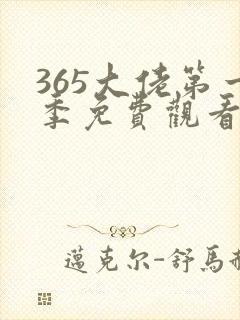 365大佬第一
季免費觀看
邁克尔-舒馬赫